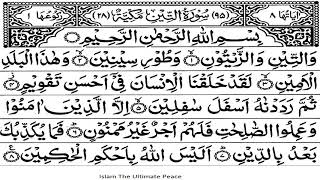 اٰيَاتُهَا ٨ (٩٥) سُوْرَةُ التِّيْنِ مَكِّيَّةٌ (٢٨) رُكُوْعُهَا ١
بِسْمِ اللّٰهِ الرَّحْمٰنِ الرَّحِيْمِ
وَالتِّيْنِ وَالزَّيْتُوْنِ ۙ١ وَطُوْرِ سِيْنِيْنَ ۙ٢ وَهٰذَا الْبَلَدِ
الْاَمِيْنِ ۙ٣ لَقَدْ خَلَقْنَا الْاِنْسَانَ فِيْٓ اَحْسَنِ تَقْوِيْمٍ ۫٤
ثُمَّ رَدَدْنٰهُ اَسْفَلَ سٰفِلِيْنَ ۙ٥ اِلَّا الَّذِيْنَ اٰمَنُوْا
وَعَمِلُوا الصّٰلِحٰتِ فَلَهُمْ اَجْرٌ غَيْرُ مَمْنُوْنٍ ؕ٦ فَمَا يُكَذِّبُكَ
بَعْدُ بِالدِّيْنِ ؕ٧ اَلَيْسَ اللّٰهُ بِاَحْكَمِ الْحٰكِمِيْنَ ٨
Islam The Ultimate Peace